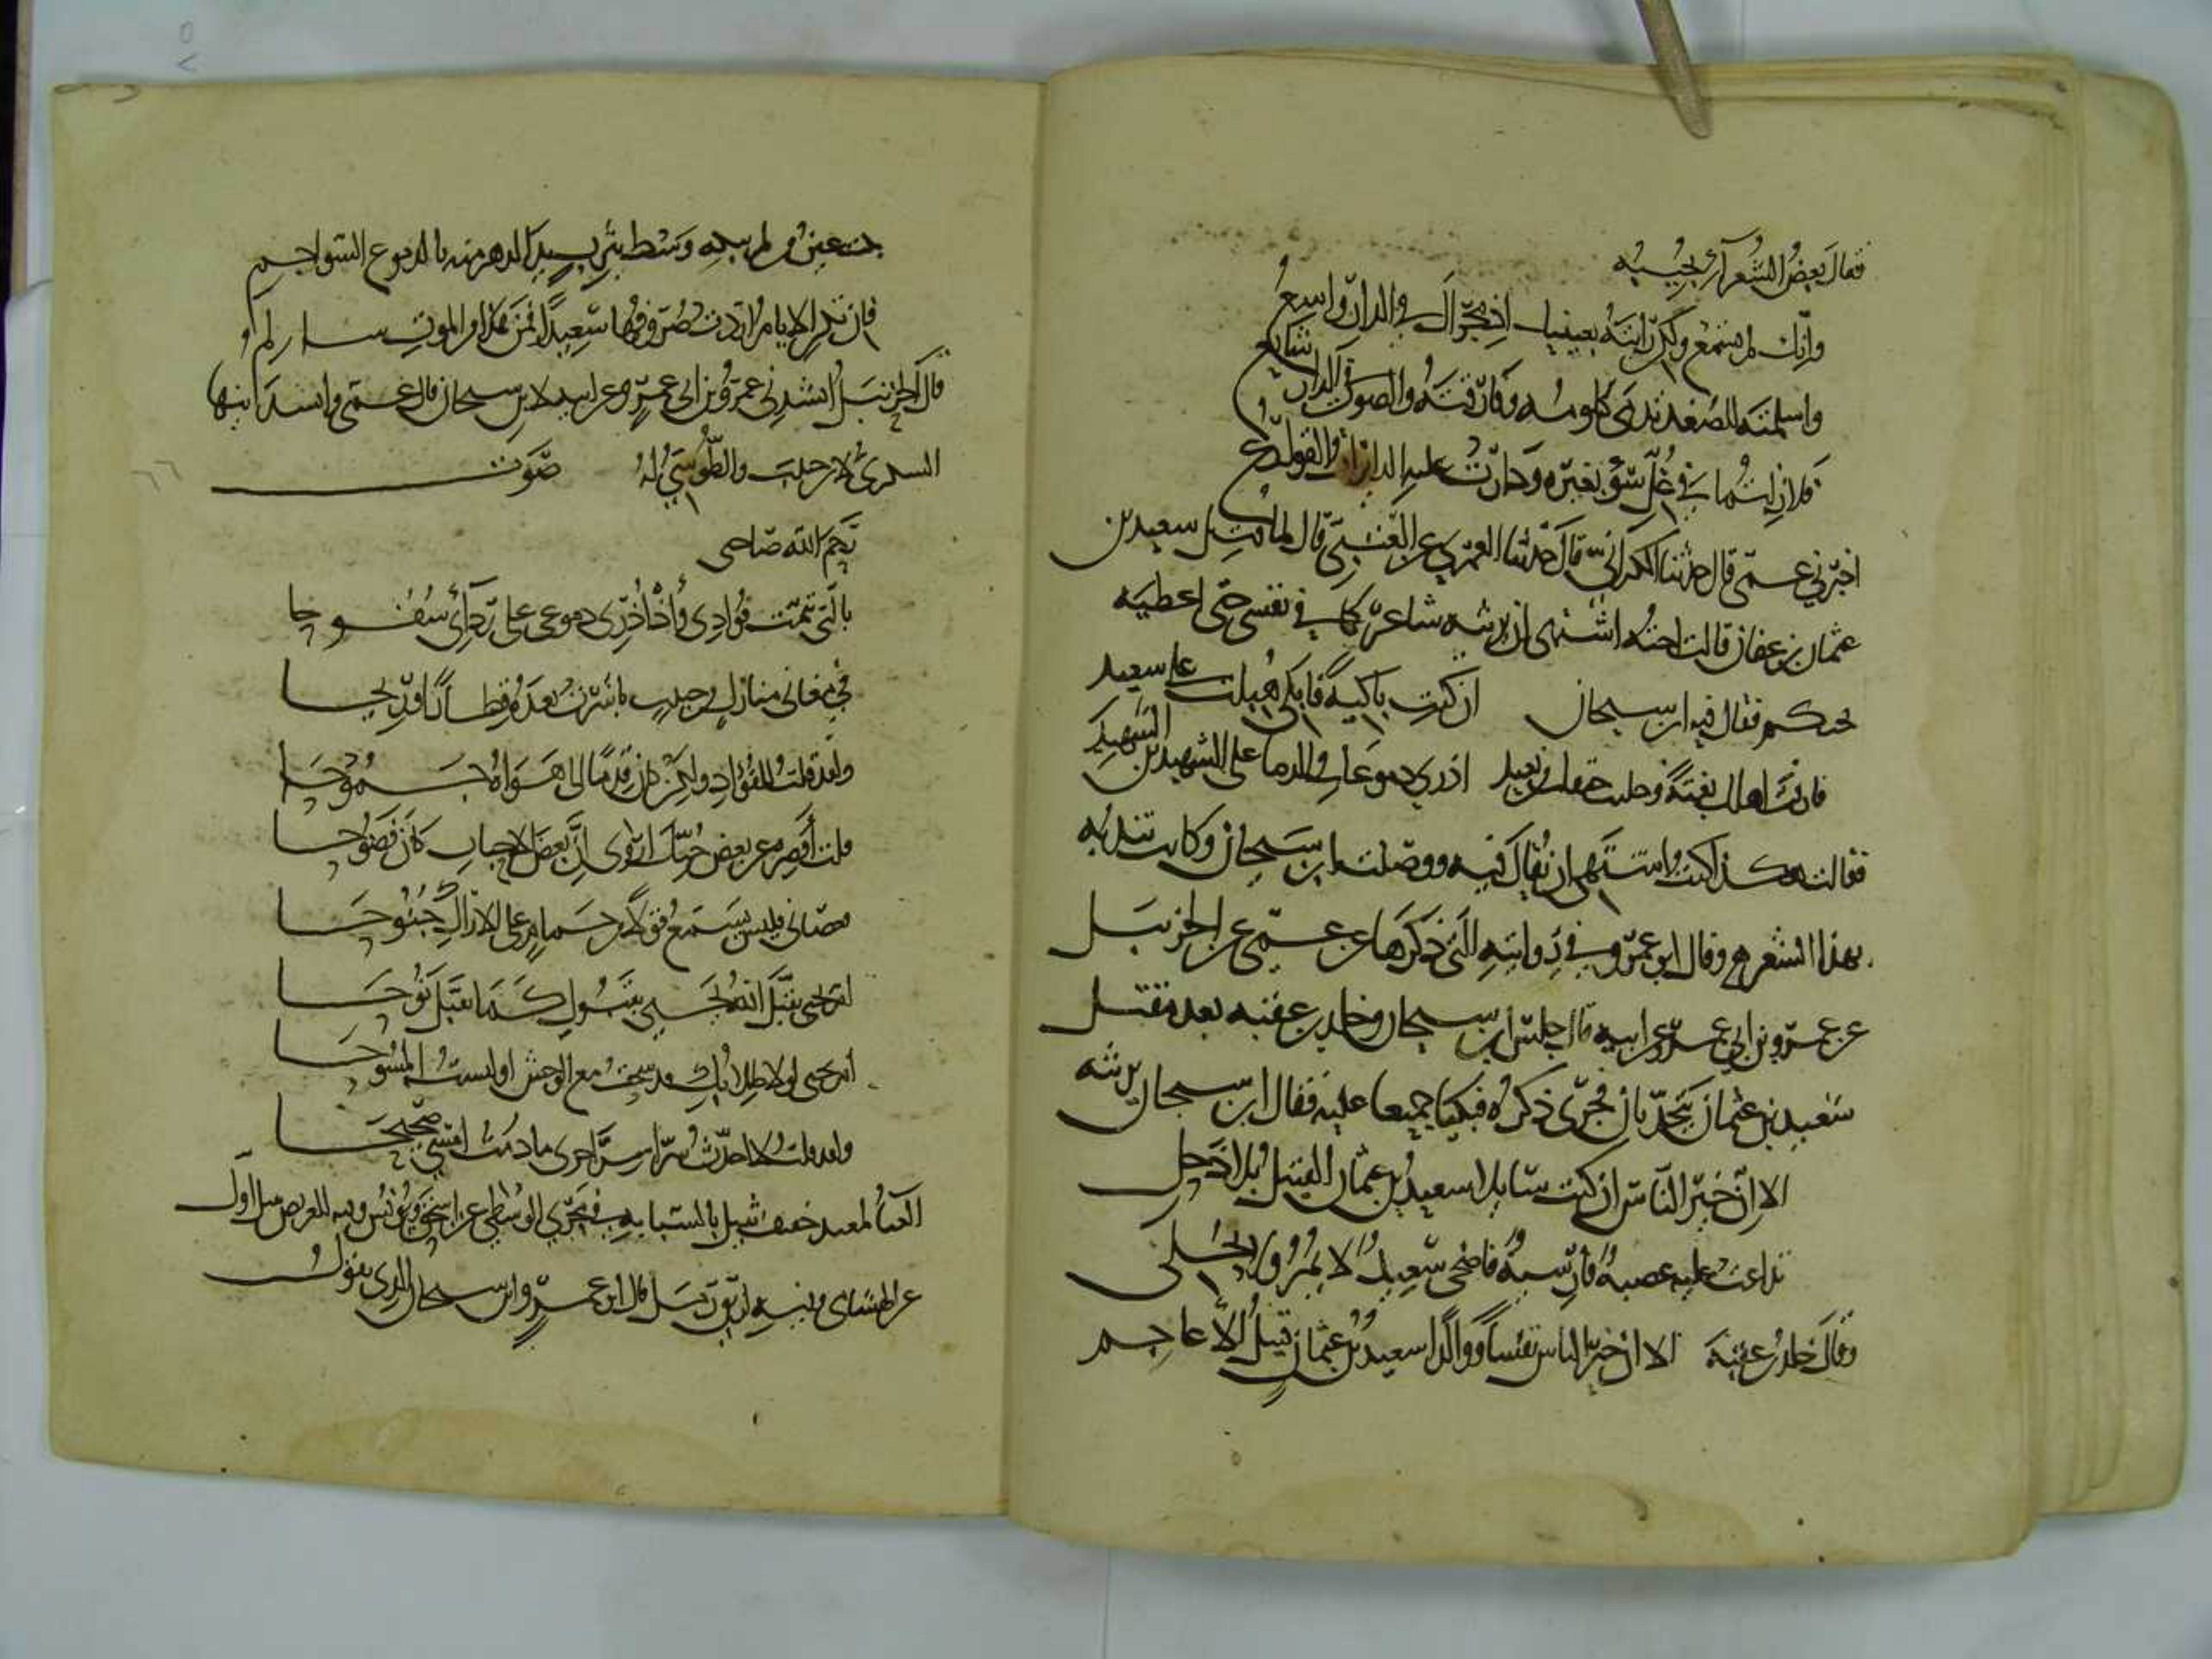 فقال بعض الشعرآء يجيبه
وانك لم تسمع ولكن رايته بعينيك اذ مجراك في الدار واسع
واسلمته للصغد تدمى كلومه وفارقته والصوت في الدار شايع
فلا زلتما في غل سوء بعبرة ودارت عليه الدايرات القوارع
اخبرني عمي قال حدثنا الكراني قال حدثنا العمري عن العتبي قال لما قتل سعيد بن
عثمان بن عفان قالت اخته اشتهي ان يرثيه شاعر كما في نفسي حتى اعطيه
يحتكم فقال فيه ابن سيحان ان كنت باكية فابكي هبلت على سعيد الشهيد
فارقت اهلك بغتة وجلبت حتفك من بعيد اذري دموعك والدما على الشهيد بن
فقالت هكذا كنت اشتهي ان يقال فيه ووصلت ابن سيحان وكانت تندبه
بهذا الشعر وقال ابو عمرو في روايته التي ذكرها عن عمي عن الحزنبل
عن عمرو بن ابي عمرو عن ابيه قال جلس ابن سيحان وخالد بن عقبة بعد مقتل
سعيد بن عثمان يتحدثان فجرى ذكره فبكيا جميعا عليه فقال ابن سيحان يرثيه
الا ان خير الناس ان كنت سايلا سعيد بن عثمان القتيل بلا ذحل
تداعت عليه عصبة فارسية فاضحى سعيد لا يمر ولا يحلي
وقال خالد بن عقبة الا ان خير الناس نفسا ووالدا سعيد بن عثمان قتيل الاعاجم
بكت عين من لم يبكه وسط يثرب يد الدهر منه بالدموع السواجم
فان تكن الايام اردت صروفها سعيدا فمن هذا من الموت سالم
قال الحزنبل انشدني عمرو بن ابي عمرو عن ابيه لابن سيحان قال عمي وانشدنيها
السكري لابن حبيب والطوسي له صوت
رحم الله صاحبي
بالتي تيمت فؤادي واذ اذري دموعي على ردآئي سفوحا
في مغاني منازل من حبيب باشرت بعده قطارا وريحا
ولقد قلت للفؤاد ولكن كان قدما الى هواه جموحا
قلت اقصر عن بعض حبك اروى ان بعض الاحباب كان فضوحا
فعصاني فليس يسمع قولا من حمام على الاراك جنوحا
ام يحيى تقبل الله يحيى بقبول كما تقبل نوحا
ام يحيى لولا طلابك قد سحت مع الوحش او لبست المسوحا
ولقد قلت لا احدث سرا سر اخرى ما دمت امشي صحيحا
الغناء لمعبد خفيف ثقيل بالسبابة في مجرى الوسطى عن اسحق ويونس وفيه للغريض ثقيل اول
عن الهشامي وفيه لزريق رمل قال ابو عمرو وابن سيحان الذي يقول